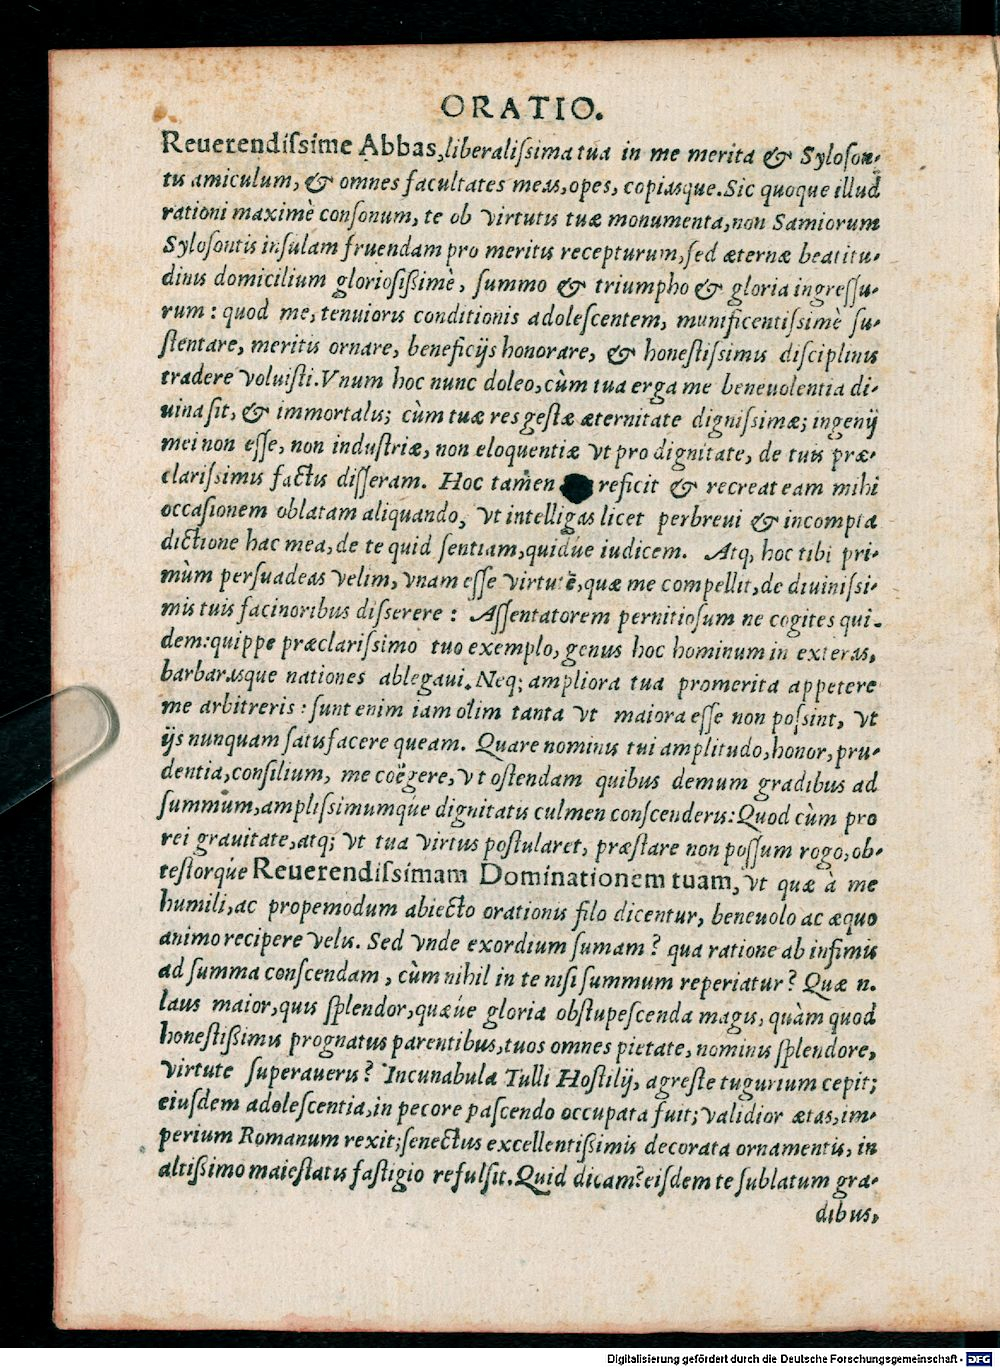 ORATIO.
Reuerendissime Abbas, liberalissima tua in me merita & Syloson-
tis amiculum, & omnes facultates meas, opes, copiasque. Sic quoque illud
rationi maximè consonum, te ob virtutis tuæ monumenta, non Samiorum
Sylosontis insulam fruendam pro meritis recepturum, sed æternæ beatitu-
dinis domicilium gloriosissimè, summo & triumpho & gloria ingressu-
rum: quod me, tenuioris conditionis adolescentem, munificentissimè su-
stentare, meritis ornare, beneficijs honorare, & honestissimis disciplinis
tradere voluisti. Vnum hoc nunc doleo, cùm tua erga me beneuolentia di-
uina sit, & immortalis; cùm tuæ res gestæ æternitate dignissimæ; ingenij
mei non esse, non industriæ, non eloquentiæ vt pro dignitate, de tuis præ-
clarissimis factis disseram. Hoc tamen reficit & recreat eam mihi
occasionem oblatam aliquando, vt intelligas licet perbreui & incompta
dictione hac mea, de te quid sentiam, quidúe iudicem. Atq; hoc tibi pri-
mùm persuadeas velim, vnam esse virtutē, quæ me compellit, de diuinissi-
mis tuis facinoribus disserere: Assentatorem pernitiosum ne cogites qui-
dem: quippe præclarissimo tuo exemplo, genus hoc hominum in exteras,
barbarasque nationes ablegaui. Neq; ampliora tua promerita appetere
me arbitreris: sunt enim iam olim tanta vt maiora esse non possint, vt
ijs nunquam satisfacere queam. Quare nominis tui amplitudo, honor, pru-
dentia, consilium, me coëgere, vt ostendam quibus demum gradibus ad
summum, amplissimumqúe dignitatis culmen conscenderis: Quod cùm pro
rei grauitate, atq; vt tua virtus postularet, præstare non possum rogo, ob-
testorqúe Reuerendissimam Dominationem tuam, vt quæ à me
humili, ac propemodum abiecto orationis filo dicentur, beneuolo ac æquo
animo recipere velis. Sed vnde exordium sumam? qua ratione ab infimis
ad summa conscendam, cùm nihil in te nisi summum reperiatur? Quæ n.
laus maior, quis splendor, quæúe gloria obstupescenda magis, quàm quod
honestissimis prognatus parentibus, tuos omnes pietate, nominis splendore,
virtute superaueris? Incunabula Tulli Hostilij, agreste tugurium cepit;
eiusdem adolescentia, in pecore pascendo occupata fuit; validior ætas, im-
perium Romanum rexit; senectus excellentissimis decorata ornamentis, in
altissimo maiestatis fastigio refulsit. Quid dicam? eisdem te sublatum gra-
dibus,
Digitalisierung gefördert durch die Deutsche Forschungsgemeinschaft - DFG